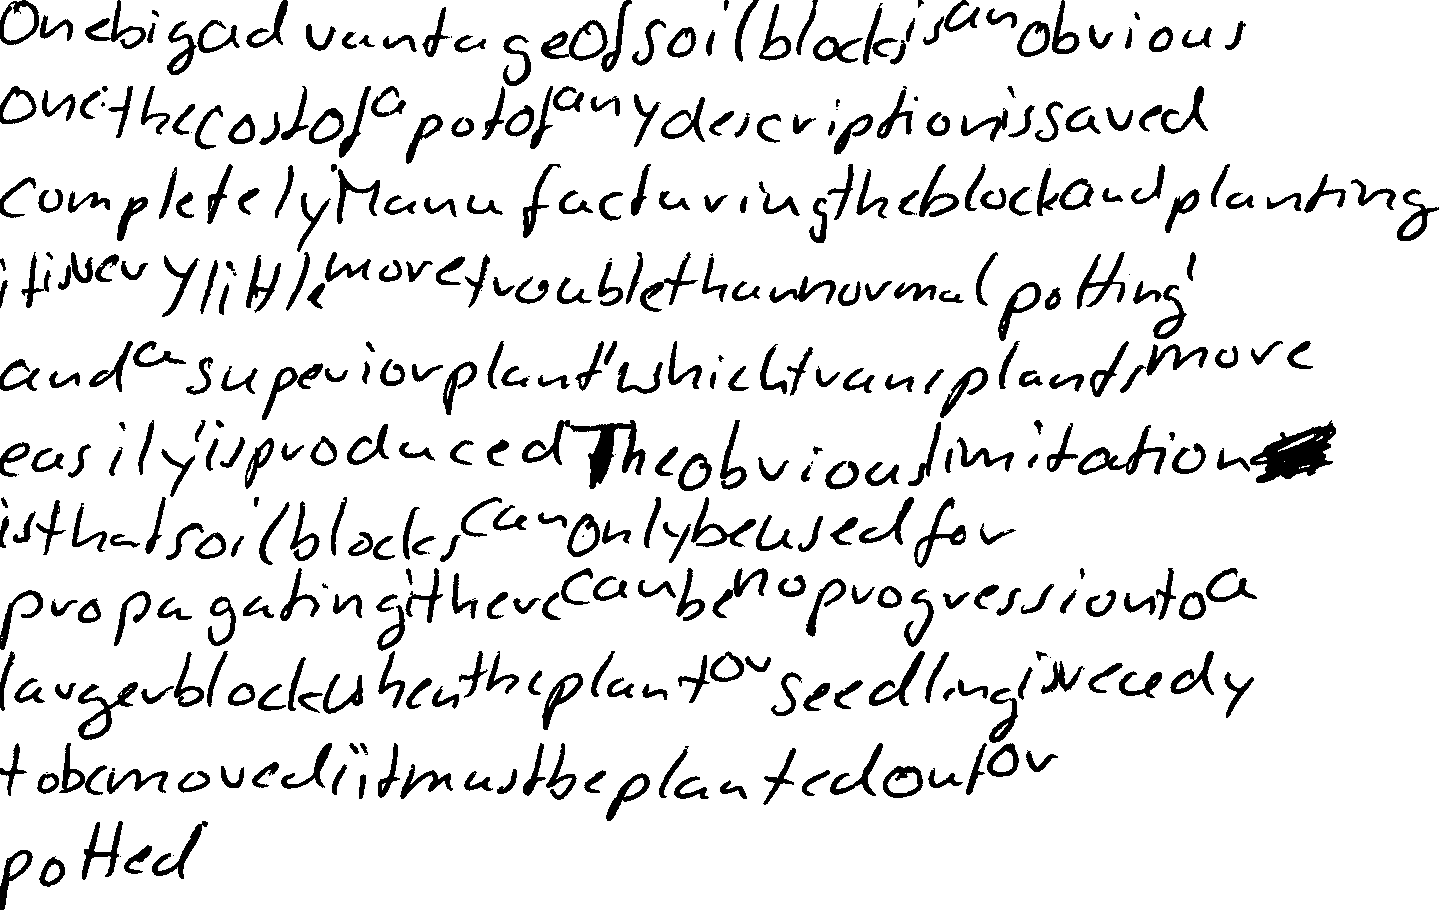 One big advantage of soil blocks is an obvious
one: the cost of a pot of any description is saved
completely. Manufacturing the block and planting
it is very little more trouble than normal potting
and a superior plant which transplants more
easily is produced. The obvious limitation
is that soil blocks can only be used for
propagating: there can be no progression to a
larger block when the plant or seedling is ready
to be moved; it must be planted out or
potted